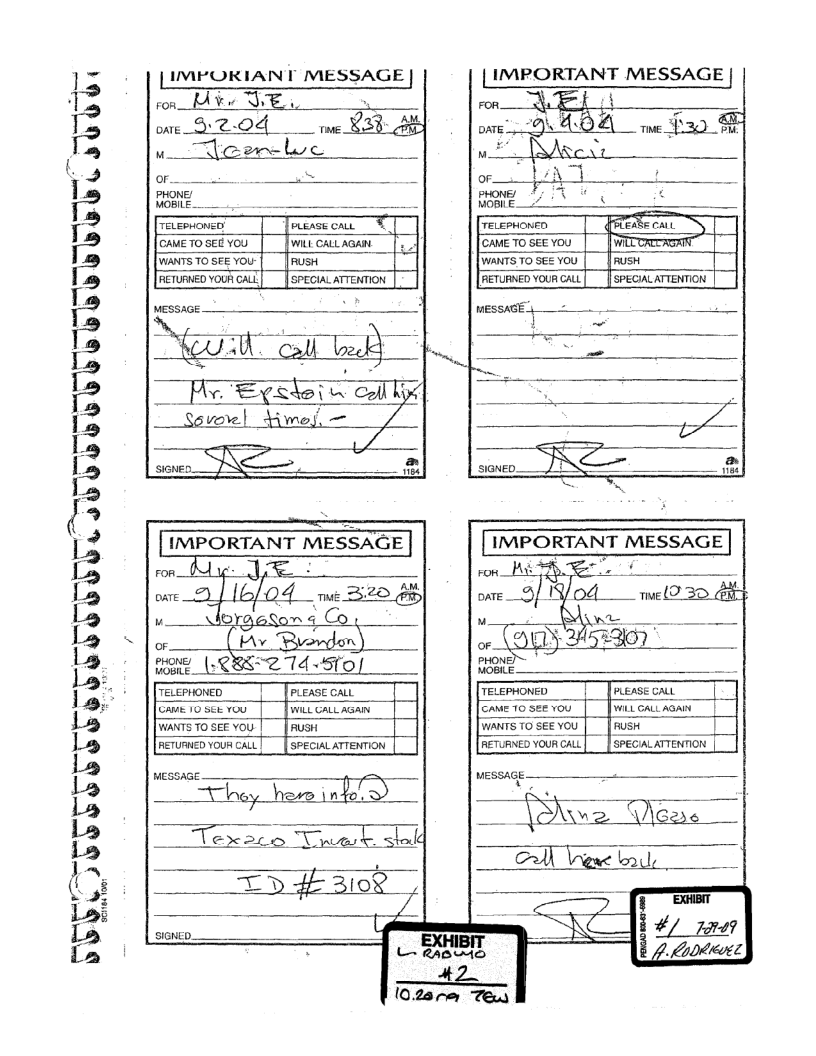 IMPORTANT MESSAGE
FOR Mr. J.E.
DATE 9.2.04 TIME 8:38 A.M. P.M.
M Jean-Luc
OF
PHONE/
MOBILE
TELEPHONED PLEASE CALL
CAME TO SEE YOU WILL CALL AGAIN
WANTS TO SEE YOU RUSH
RETURNED YOUR CALL SPECIAL ATTENTION
MESSAGE
(Will call back)
Mr. Epstein call him
several times. -
SIGNED
1184
IMPORTANT MESSAGE
FOR J.E.
DATE 9.4.04 TIME 1:30 A.M. P.M.
M
OF
PHONE/
MOBILE
TELEPHONED PLEASE CALL
CAME TO SEE YOU WILL CALL AGAIN
WANTS TO SEE YOU RUSH
RETURNED YOUR CALL SPECIAL ATTENTION
MESSAGE
SIGNED
1184
IMPORTANT MESSAGE
FOR Mr. J.E.
DATE 9/16/04 TIME 3:20 A.M. P.M.
M Jorgeson & Co.
OF (Mr Brandon)
PHONE/
MOBILE 1-888-274-5101
TELEPHONED PLEASE CALL
CAME TO SEE YOU WILL CALL AGAIN
WANTS TO SEE YOU RUSH
RETURNED YOUR CALL SPECIAL ATTENTION
MESSAGE
They have info.
Texaco stock
ID # 3108
SIGNED
SCI184 10/01
IMPORTANT MESSAGE
FOR Mr. J.E.
DATE 9/18/04 TIME 10:30 A.M. P.M.
M Alina
OF (917) 345-3107
PHONE/
MOBILE
TELEPHONED PLEASE CALL
CAME TO SEE YOU WILL CALL AGAIN
WANTS TO SEE YOU RUSH
RETURNED YOUR CALL SPECIAL ATTENTION
MESSAGE
Alina Please
call back
EXHIBIT
#1 7-29-09
A. RODRIGUEZ
PENGAD 800-631-6989
EXHIBIT
#2
10.20.09 TEW